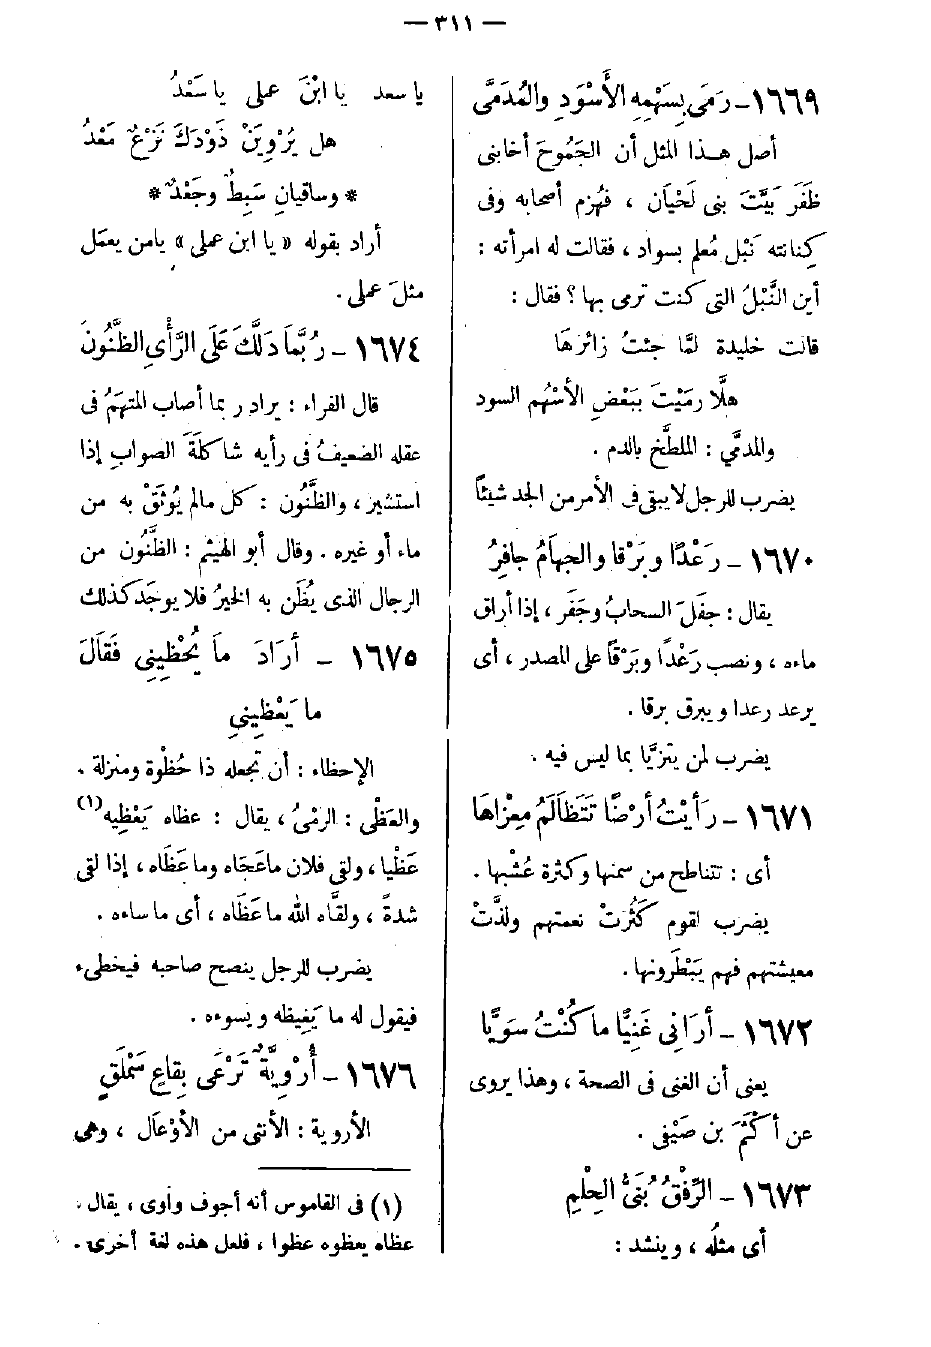 — ٣١١ —
١٦٦٩ - رَمَى بِسَهْمِهِ الأَسْوَدِ والمُدَمَّى
أصل هـذا المثل أن الجَمُوحَ أخابنى
ظَفَر بَيَّتَ بنى لَحْيَان ، فهُزم أصحابه وفى
كِنانته نَبْل مُعلم بسواد ، فقالت له امرأته :
أين النَّبْلُ التى كنت ترمى بها ؟ فقال :
قالت خليدة لمَّا جئتُ زائرهَا
هلَّا رمَيْتَ بِبَعْضِ الأسْهُم السود
والمدمَّي : الملطَّخ بالدم .
يضرب للرجل لا يبقى فى الأمر من الجد شيئاً
١٦٧٠ - رَعْدًا وبَرْقا والجهامُ جافِرُ
يقال : جفَلَ السحابُ وجَفَر ، إذا أراق
ماءه ، ونصب رَعْدًا وبَرْقاً على المصدر ، أى
يرعد رعدا ويبرق برقا .
يضرب لمن يتزيَّا بما ليس فيه .
١٦٧١ - رَأَيْتُ أرْضًا تَتَظَالَمُ مِعْزَاهَا
أى : تتناطح من سمنها وكثرة عُشْبها .
يضرب لقوم كَثُرَتْ نعمتهم ولذَّتْ
معيشتهم فهم يَبْطَرونها .
١٦٧٢ - أرَانِى غَنِيًّا ما كُنْتُ سَوِيًّا
يعنى أن الغنى فى الصحة ، وهذا يروى
عن أكْثَمَ بن صَيْفى .
١٦٧٣ - الرِّفْقُ بُنَىُّ الحِلْمِ
أى مثلُه ، وينشد :
يا سعد يا ابْنَ عملى يا سَعْدُ
هل يُرْوِيَنْ ذَوْدَكَ نَزْعٌ مَعْدُ
* وساقيانِ سَبِطٌ وجَعْدٌ *
أراد بقوله « يا ابن عملى » يامن يعمَل
مثلَ عملى .
١٦٧٤ - رُبَّمَا دَلَّكَ عَلَى الرَّأْىِ الظَّنُونَ
قال الفراء : يراد ربما أصاب المتهَمُ فى
عقله الضعيفُ فى رأيه شاكلَةَ الصوابِ إذا
استشير ، والظَّنُون : كل مالم يُوثَقْ به من
ماء أو غيره . وقال أبو الهيثم : الظَّنُون من
الرجال الذى يُظَن به الخيرُ فلا يوجَد كذلك
١٦٧٥ - أرَادَ مَا يُحْظِينِى فَقَالَ
ما يَعْظِينيِ
الإحظاء : أن تجعله ذا حُظْوة ومنزلة .
والعَظْى : الرمْىُ ، يقال : عظاه يَعْظِيه (١)
عَظْيا ، ولقى فلان ماعَجَاه وما عَظَاه ، إذا لقى
شدةً ، ولقَّاه الله ما عَظَاه ، أى ما ساءه .
يضرب للرجل ينصح صاحبه فيخطىء
فيقول له ما يَغِيظه ويسوءه .
١٦٧٦ - أُرْوِيَّةٌ تَرْعَى بِقاعٍ سَمْلَقٍ
الأروية : الأنثى من الأوْعَال ، وهى
(١) فى القاموس أنه أجوف واوى ، يقال ،
عظاه يعظوه عظوا ، فلعل هذه لغة أخرى .